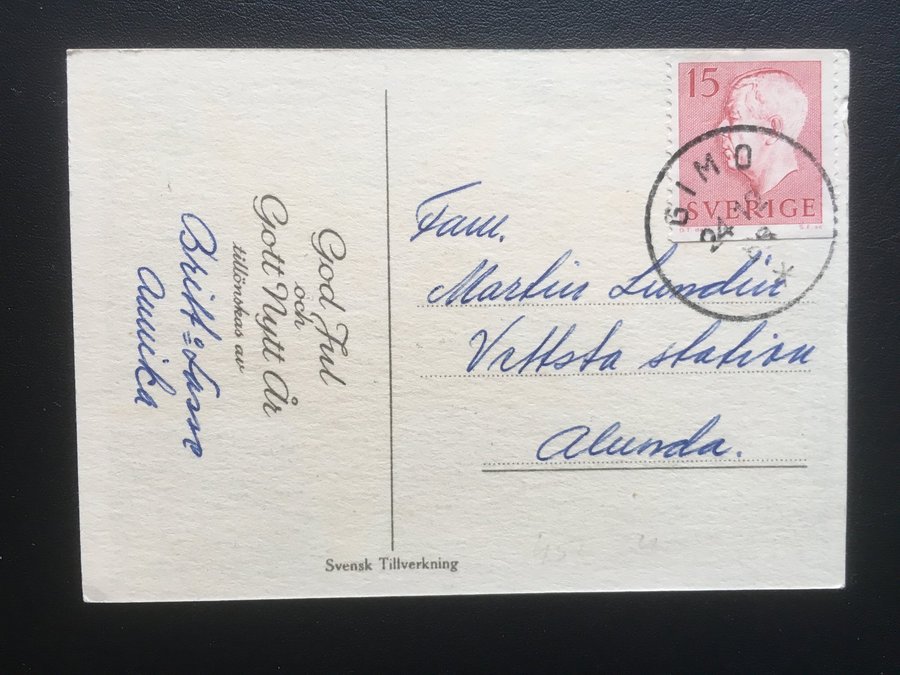 God Jul
och
Gott Nytt År
tillönskas av
Britt = Lasse
Annika
Svensk Tillverkning
15
SVERIGE
GIMO
24 12
Fam.
Martin Lundin
Vettsta station
Alunda.